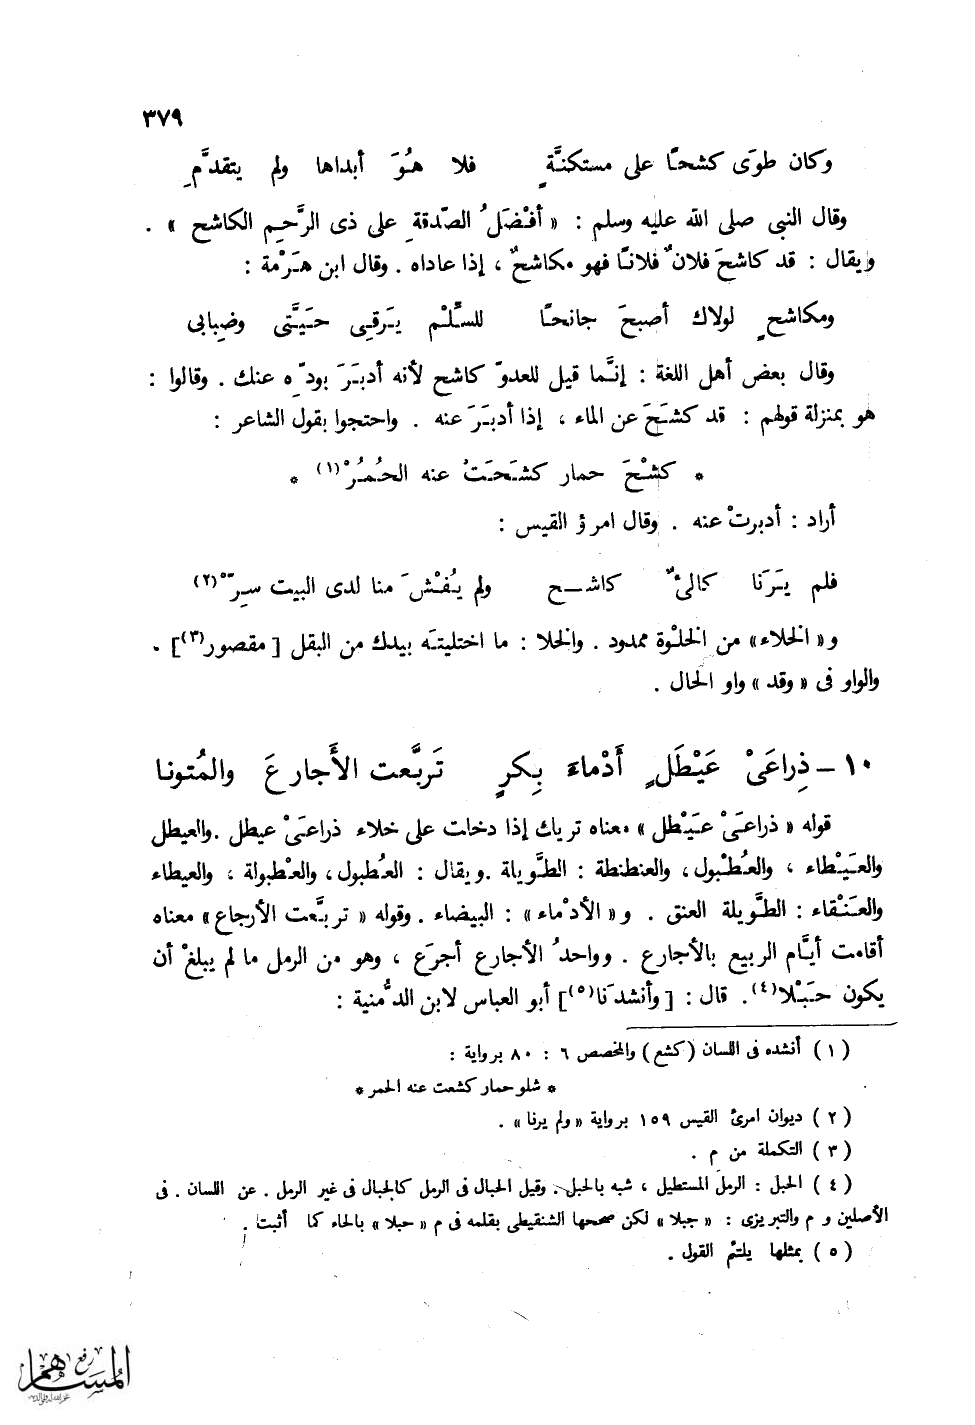 ٣٧٩
وكان طوَى كشحًا على مستكنَّةٍ فلا هُوَ أبداها ولم يتقدَّمِ
وقال النبى صلى الله عليه وسلم : « أفْضَلُ الصّدقةِ على ذى الرَّحِم الكاشح » .
ويقال : قد كاشحَ فلانٌ فلانًا فهو مكاشحٌ ، إذا عاداه . وقال ابن هَرْمة :
ومكاشحٍ لولاك أصبحَ جانحًا للسَّلْم يَرقِى حَيَّتى وضِبابى
وقال بعض أهل اللغة : إنَّما قيل للعدوّ كاشح لأنه أدبَرَ بودّه عنك . وقالوا :
هو بمنزلة قولهم : قد كشَحَ عن الماء ، إذا أدبَرَ عنه . واحتجوا بقول الشاعر :
* كشْحَ حمار كشَحَتْ عنه الحُمُرْ(١) *
أراد : أدبرتْ عنه . وقال امرؤ القيس :
فلم يَرَنا كالئٌ كاشح ولم يُفْشَ منا لدى البيت سِرّْ(٢)
و« الخلاء» من الخلْوة ممدود . والخلا : ما اختليتَه بيدك من البقل [ مقصور(٣)] .
والواو فى « وقد » واو الحال .
١٠ – ذِراعَىْ عَيْطَلٍ أَدْماءَ بِكرٍ تَربَّعت الأَجارعَ والمُتونا
قوله « ذراعَىْ عَيْطل » معناه تريك إذا دخلت على خلاء ذراعَىْ عيطل . والعيطل
والعَيْطاء ، والعُطْبول، والعنطنطة : الطَّويلة . ويقال : العُطبول، والعْطبولة ، والعيطاء
والعَنْقاء : الطَّويلة العنق . و « الأدْماء » : البيضاء . وقوله « تربَّعت الأرجاع » معناه
أقامت أيَّام الربيع بالأجارع . وواحدُ الأجارع أجرَع ، وهو من الرمل ما لم يبلغْ أن
يكون حَبْلا(٤). قال : [ وأنشدَنا(٥)] أبو العباس لابن الدُّمنية :
( ١ ) أنشده فى اللسان (كشع) والمخصص ٦ : ٨٠ برواية :
* شلو حمار كشعت عنه الحمر *
( ٢ ) ديوان امرئ القيس ١٥٩ برواية « ولم يرنا » .
( ٣ ) التكملة من م .
( ٤ ) الحبل : الرمل المستطيل ، شبه بالحبل . وقيل الحبال فى الرمل كالجبال فى غير الرمل . عن اللسان . فى
الأصلين و م والتبريزى : « جبلا » لكن صححها الشنقيطى بقلمه فى م « حبلا » بالحاء كما أثبت .
( ٥ ) بمثلها يلتئم القول .